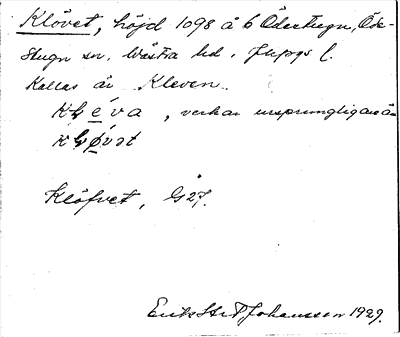 Klövet, höjd 1098 å 6 Ödestugu, Öde-
stugu sn. Västra hd. Jkpgs l.
Kallas är Kleven.
Kleva, verkar ursprungligare än
Kløvət
Klöfvet, G 27.
Erik Johansson 1929.